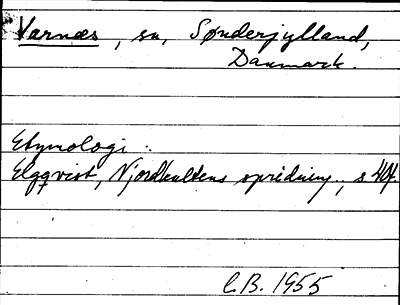 Varnæs, sn, Sønderjylland,
Danmark.
Etymologi:
Elgqvist, Njordkultens spridning, s. 40f.
C.B. 1955